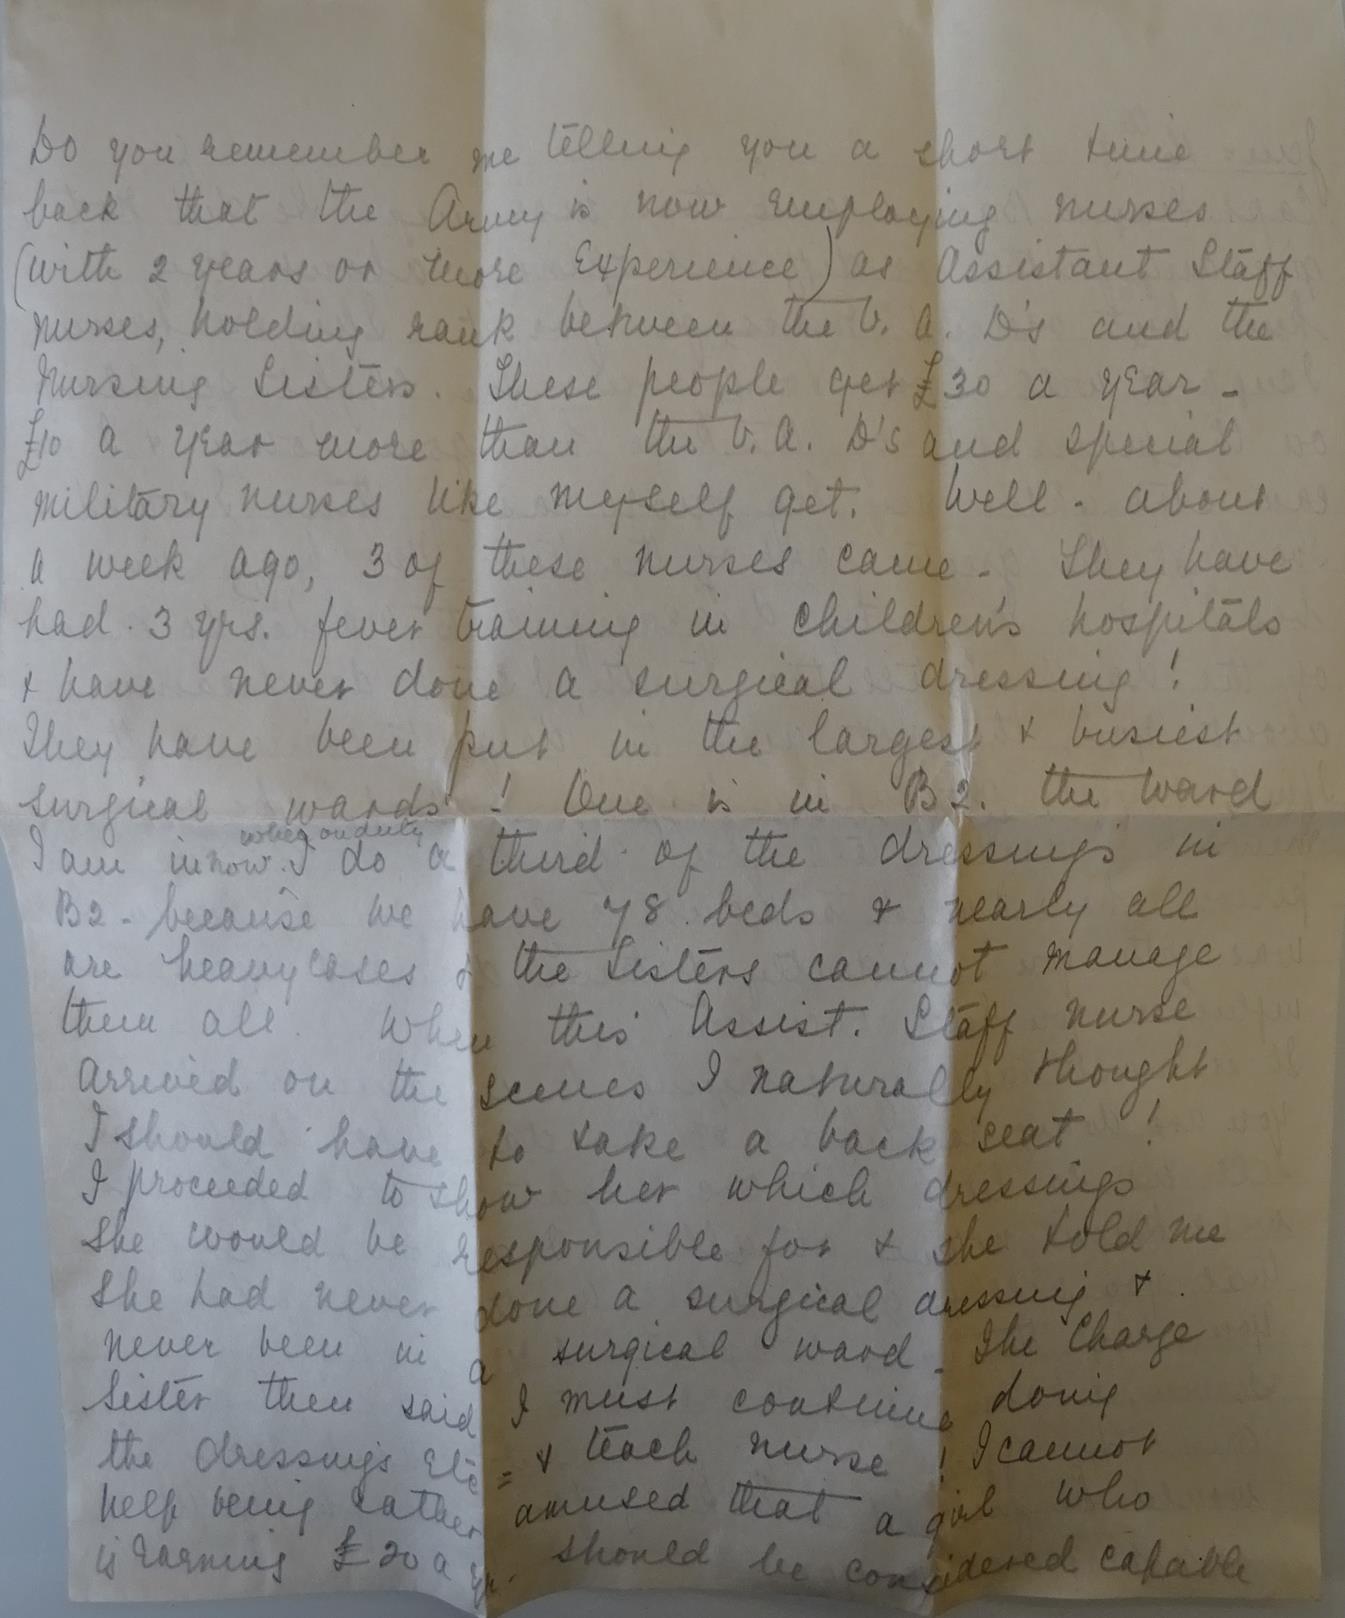 Do you remember me telling you a short time
back that the Army is now employing nurses
(with 2 years or more experience) as Assistant Staff
nurses, holding rank between the V. A. D's and the
Nursing Sisters. These people get £30 a year -
£10 a year more than the V. A. D's and special
military nurses like myself get. Well - about
a week ago, 3 of these nurses came - They have
had 3 yrs. fever training in children's hospitals
& have never done a surgical dressing!
They have been put in the largest & busiest
surgical wards! One is in B2. the ward
when on duty
I am in now. I do a third of the dressings in
B2 - because we have 78 beds & nearly all
are heavy cases & the Sisters cannot manage
them all. When this Assist. Staff nurse
arrived on the scenes I naturally thought
I should have to take a back seat!
I proceeded to show her which dressings
she would be responsible for & she told me
she had never done a surgical dressing &
never been in a surgical ward - The Charge
Sister then said I must continue doing
the dressings etc = & teach nurse! I cannot
help being rather amused that a girl who
is earning £20 a yr. should be considered capable